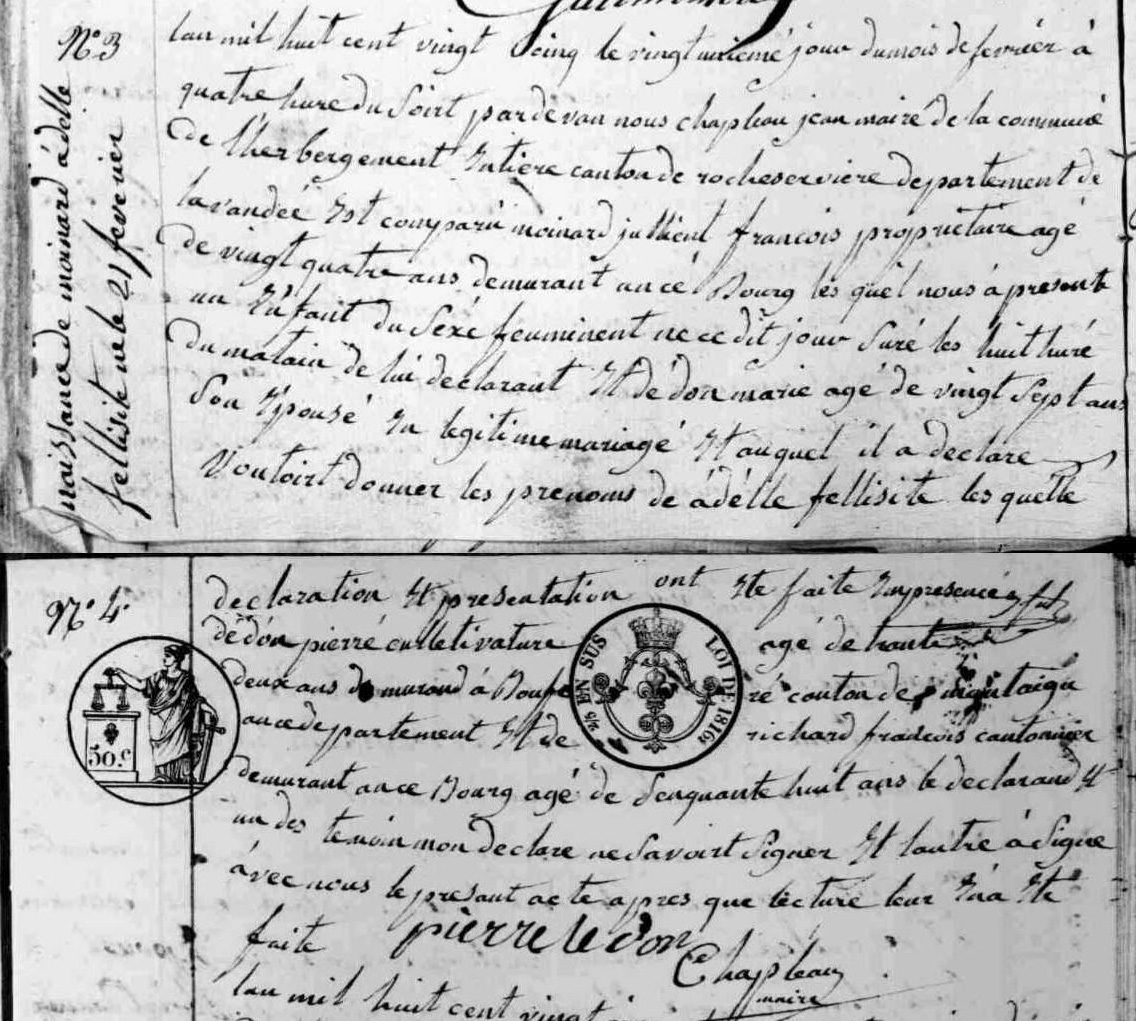 N° 3
naissance de moinard adelle
fellisite ne le 21 fevrier
lan mil huit cent vingt cinq le vingt unieme jour du mois de fevrier à
quatre hure du Soirt pardevan nous chapleau jean maire de la commune
de lherbergement Entiere canton de rocheserviere departement de
la vandée Est comparu moinard jullient francois propriétaire agé
de vingt quatre ans demurant an cé Bourg les quel nous à presente
un Enfant du Séxe feuminent ne ce dit jour Suré les huit huré
du matain de lui declarant Et dé don marie agé de vingt Sept ans
Son Epousé En legitime mariagé Et auquel il a declare
Vouloirt donner les prenoms de adélle fellisite les quelle
N° 4
declaration Et presentation ont Ete faite En presence
dé don pierré culletivature agé de trante
deux ans demurand à Boufe ré canton de montaigu
ance departement Et de richard francois cantonnier
demurant ance Bourg agé de Senquante huit ans le declarand Et
un des temoin mon declare ne Savoirt Signer Et lautre à Signe
avec nous le presant acte apres que lecture leur En a Ete
faite
pierre le don
Chapleau
maire
50.c
EN SUS
LOI DE 1816
lan mil huit cent vingt